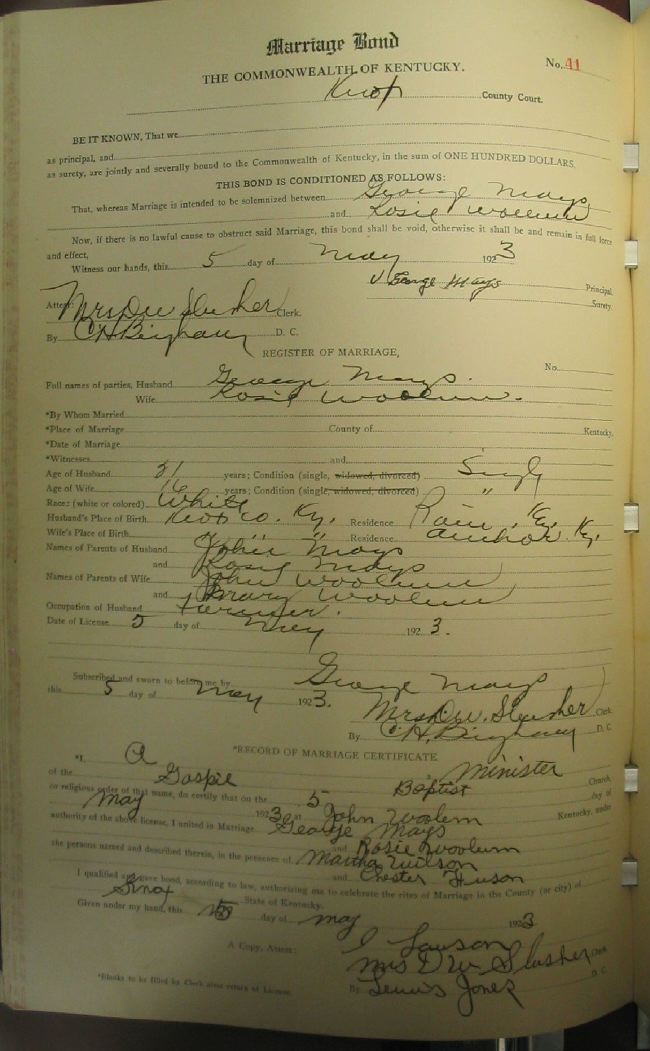 Marriage Bond
No. 41
THE COMMONWEALTH OF KENTUCKY.
Knox County Court.
BE IT KNOWN, That we
as principal, and
as surety, are jointly and severally bound to the Commonwealth of Kentucky, in the sum of ONE HUNDRED DOLLARS.
THIS BOND IS CONDITIONED AS FOLLOWS:
That, whereas Marriage is intended to be solemnized between George Mays
and Rosie Woolum
Now, if there is no lawful cause to obstruct said Marriage, this bond shall be void, otherwise it shall be and remain in full force
and effect,
Witness our hands, this 5 day of May 1923
George Mays Principal.
Surety.
Attest: Mrs D W Slusher Clerk.
By C H Bingham D. C.
REGISTER OF MARRIAGE,
No.
Full names of parties, Husband George Mays.
Wife Rosie Woolum.
*By Whom Married
*Place of Marriage County of Kentucky.
*Date of Marriage
*Witnesses and
Age of Husband 21 years; Condition (single, widowed, divorced) Single
Age of Wife 16 years; Condition (single, widowed, divorced) "
Race: (white or colored) White
Husband's Place of Birth Knox Co. Ky. Residence Ky.
Wife's Place of Birth " " Residence Anchor Ky.
Names of Parents of Husband John Mays
and Rosie Mays
Names of Parents of Wife John Woolum
and Mary Woolum
Occupation of Husband Farmer.
Date of License 5 day of May 1923.
Subscribed and sworn to before me by George Mays
this 5 day of May 1923.
Mrs. D. W. Slusher Clerk
By C. H. Bingham D. C.
*RECORD OF MARRIAGE CERTIFICATE
*I, A Minister
of the Gospel Baptist Church,
or religious order of that name, do certify that on the 5 day of
May 1923 at John Woolem Kentucky, under
authority of the above license, I united in Marriage George Mays
and Rosie Woolum
the persons named and described therein, in the presence of Martha Wilson
and Chester
I qualified and gave bond, according to law, authorizing me to celebrate the rites of Marriage in the County (or city) of
Knox State of Kentucky.
Given under my hand, this 5 day of May 1923
J Lawson
A Copy, Attest: Mrs D W Slusher Clerk
By Jones D. C.
*Blanks to be filled by Clerk after return of License